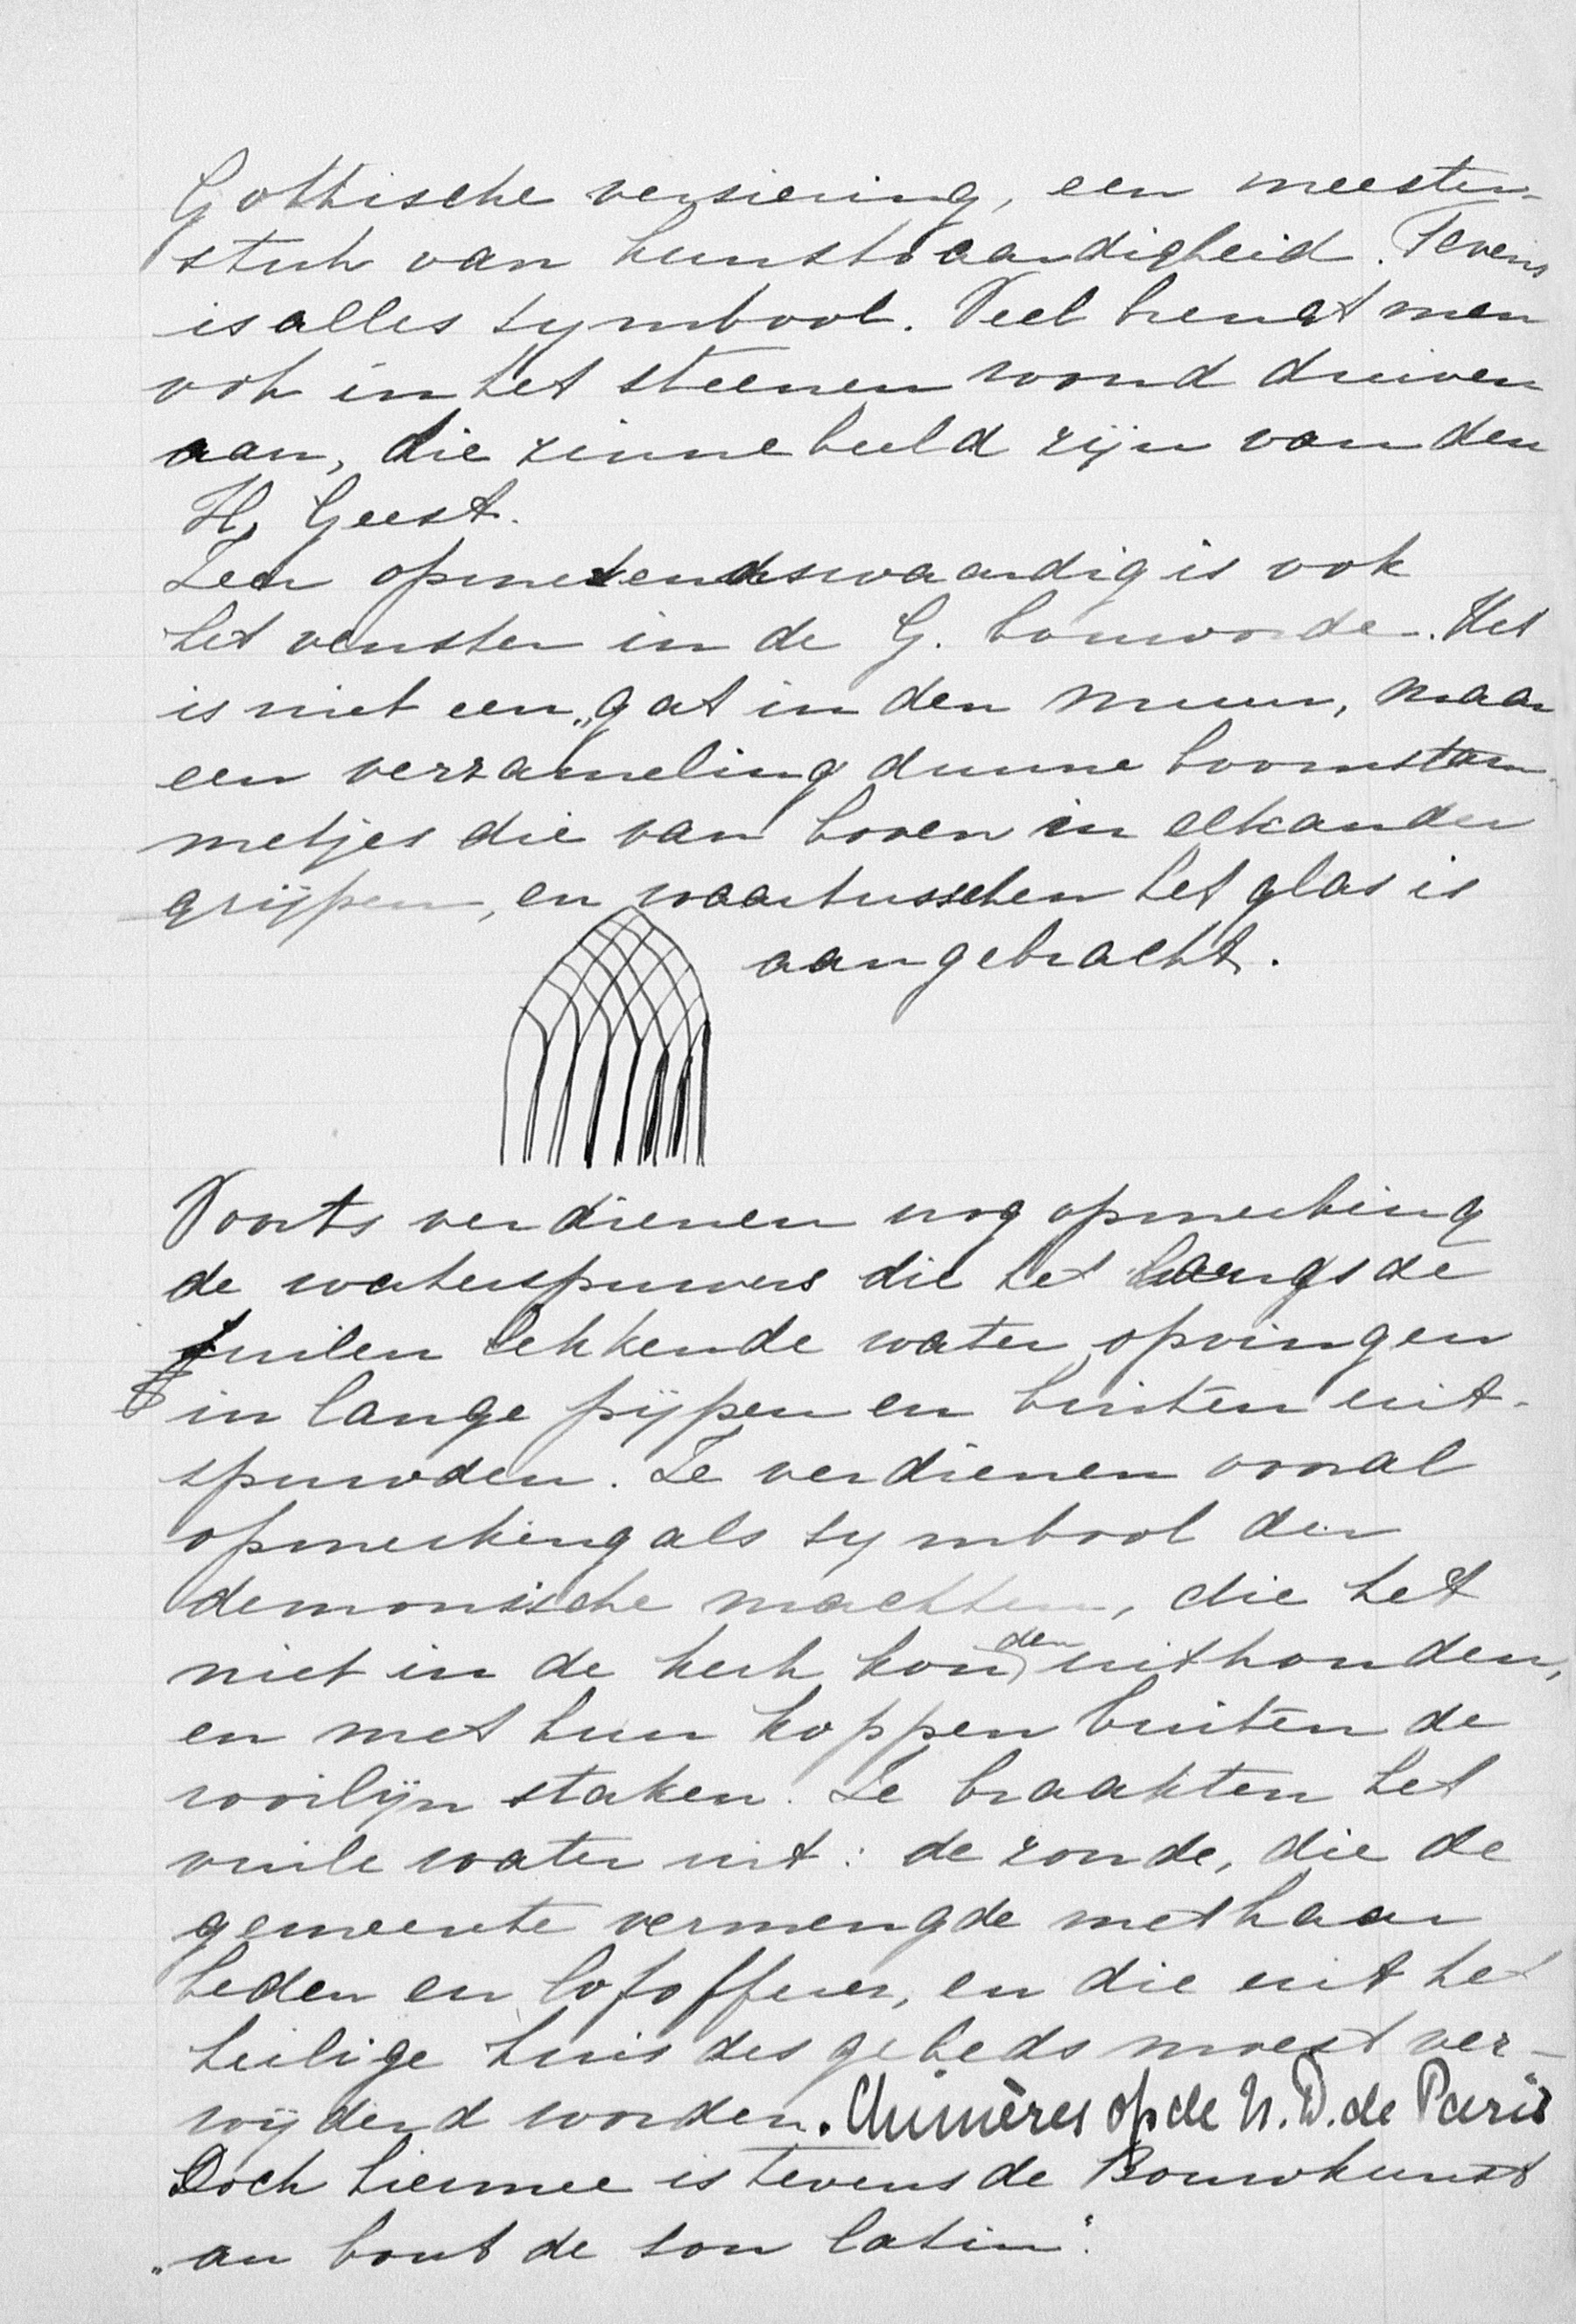 Gothische versiering, een meester-
stuk van kunstvaardigheid. Tevens
is alles symbool. Veel brengt men
ook in het steenen woud druiven
aan, die zinnebeeld zijn van den
H. Geest.
Zeer opmerkenswaardig is ook
het venster in de G. bouworde. Het
is niet een „gat in den muur, maar
een verzameling dunne boomstam-
metjes die van boven in elkander
grijpen, en waartusschen het glas is
aangebracht.
Voorts verdienen nog opmerking
de waterspuwers die het langs de
zuilen lekkende water opvingen
in lange pijpen en buiten uit-
spuwden. Ze verdienen vooral
opmerking als symbool der
demonische machten, die het
niet in de kerk konden uithouden,
en met hun koppen buiten de
rooilijn staken. Ze braakten het
vuile water uit: de zonde, die de
gemeente vermengde met haar
beden en lofoffers, en die uit het
heilige huis des gebeds moest ver-
wijderd worden. Chimères op de N. D. de Paris
Doch hiermee is tevens de Bouwkunst
„au bout de son latin".